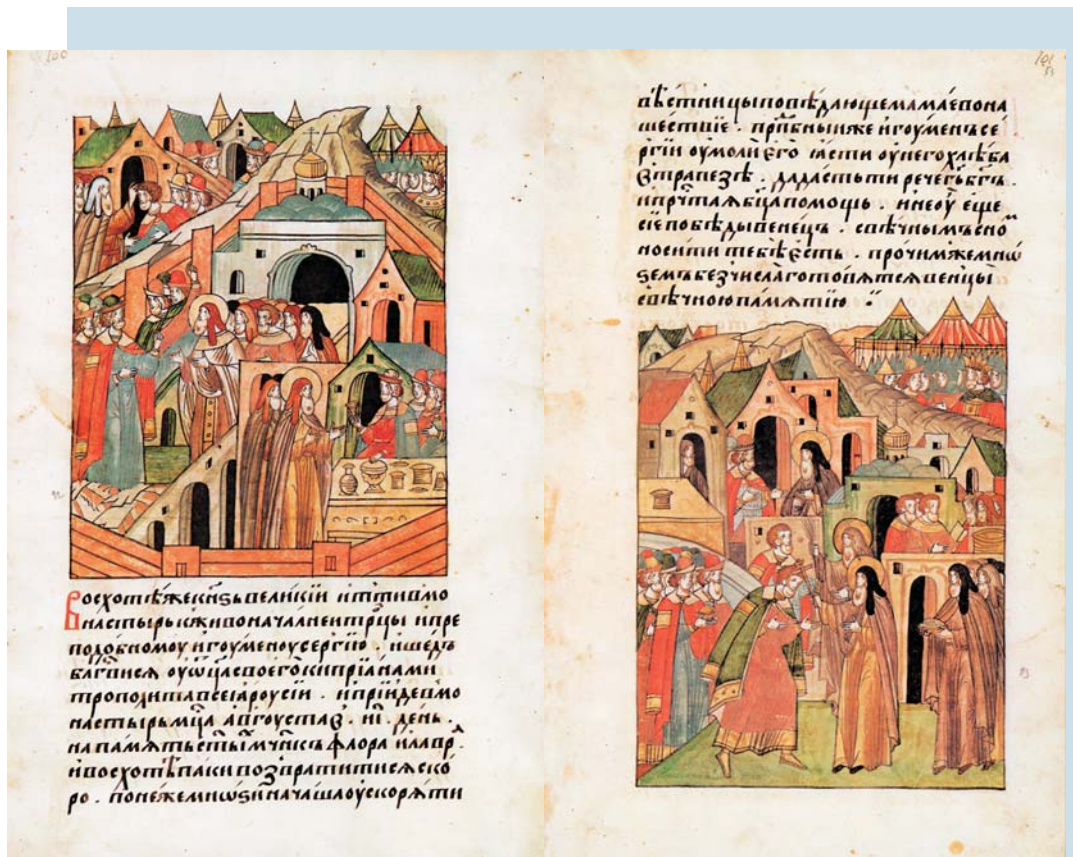 100
восхотѣжекн҃ѕьвеликїи иттивмо
настырьсживоначалнеитрⷪ҇цы ипре
подобномоуигоуменоусергїю . ишедъ
благⷭ҇висѧ оуѡц҃асвоегоⷢ҇киприанами
трополитавсеѧроусїи . ипрїидевмо
настырьмцⷭ҇а августав҃ . иі . день .
напамѧтьст҃ыⷯ҇мч҃нкъ флора илаврⷶ
ивосхотѣпакивозвратитисѧско
ро . понежемноѕиначашаоускорѧти
101
вѣстницыповѣдающемамаевона
шествїе . прпⷣбныиже игоуменъсе
ргїи оумолиего ꙗсти оунегохлѣба
втрапезѣ . дадастьти речегⷭ҇ьбг҃ъ .
ипрчⷭ҇таѧбцⷣапомощь . инеоу еще
сїепобѣдывенецъ . свѣчнымъсно
носити тебѣесть . прочимжемнѡ
ѕемъбезчислаготовѧтсѧвенцы
свѣчноюпамѧтїю